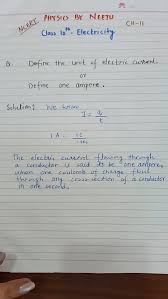 NCERT PHYSICS BY NEETU CH-11
Class 10th - Electricity
Q. Define the unit of electric current.
or
Define one ampere.
Solution: We know
I = Q/t
1A = 1C/1sec
The electric current flowing through
a conductor is said to be one ampere,
when one coulomb of charge flows
through any cross-section of a conductor
in one second.